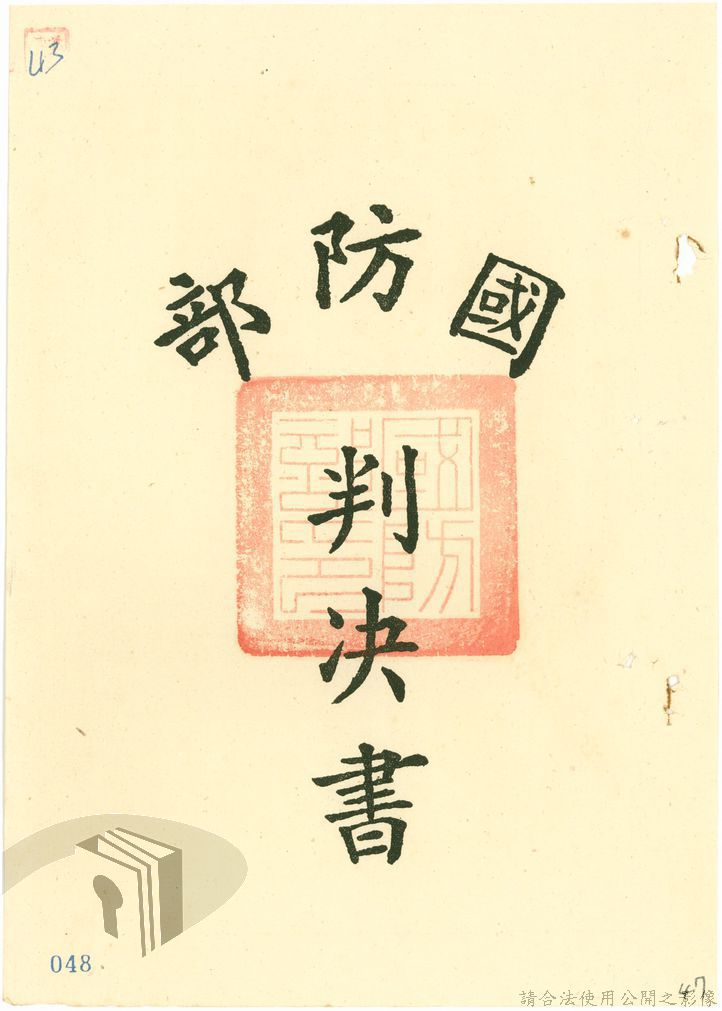 43
國防部
判決書
國防部印
048
47
請合法使用公開之影像